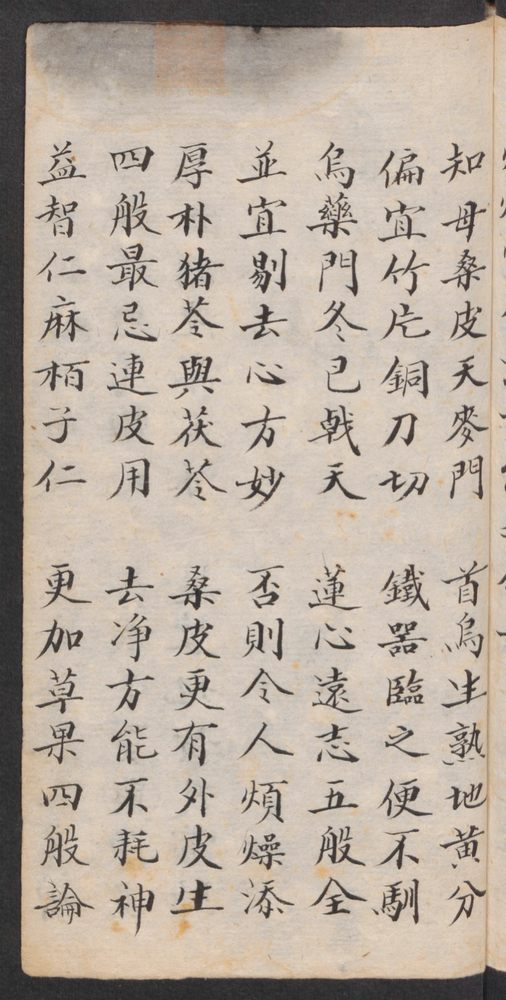 知母桑皮天麥門 首烏生熟地黃分
偏宜竹片銅刀切 鐵器臨之便不馴
烏藥門冬巴戟天 蓮心遠志五般全
並宜剔去心方妙 否則令人煩燥添
厚朴猪苓與茯苓 桑皮更有外皮生
四般最忌連皮用 去净方能不耗神
益智仁麻栢子仁 更加草果四般論